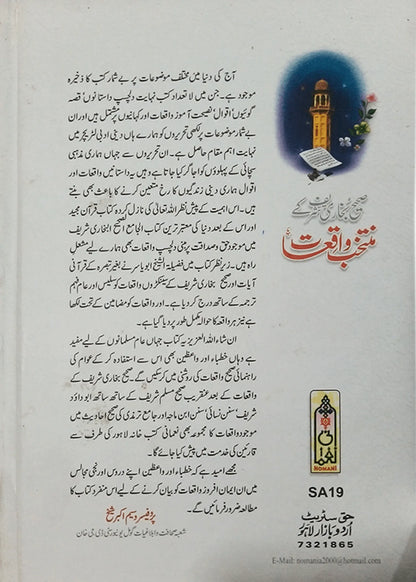 آج کی دنیا میں مختلف موضوعات پر بے شمار کتب کا ذخیرہ
موجود ہے۔ جن میں لا تعداد کتب نہایت دلچسپ داستانوں' قصہ
گوئیوں' اقوال' نصیحت آموز واقعات اور کہانیوں پر مشتمل ہیں اور ان
بے شمار موضوعات پر لکھی تحریروں کو ہمارے ہاں دینی ادبی لٹریچر میں
نہایت اہم مقام حاصل ہے۔ ان تحریروں سے جہاں ہماری مذہبی
سچائی کے پہلوؤں کو اجاگر کیا جاتا ہے وہیں یہ داستانیں واقعات اور
اقوال ہماری دینی زندگیوں کا رخ متعین کرنے کا باعث بھی بنتے
ہیں۔ اس اہمیت کے پیش نظر اللہ تعالیٰ کی نازل کردہ کتاب قرآن مجید
اور اس کے بعد دنیا کی معتبر ترین کتاب الجامع الصحیح البخاری شریف
میں موجود حق و صداقت پر مبنی دلچسپ واقعات بھی ہمارے لیے مشعل
راہ ہیں۔ زیر نظر کتاب میں فضیلۃ الشیخ ابو یاسر نے بغیر تبصرہ کے قرآنی
آیات اور صحیح بخاری شریف کے سینکڑوں واقعات کو سلیس اور عام فہم
ترجمہ کے ساتھ درج کر دیا ہے۔ اور واقعات کو مضامین کے تحت لکھا
ہے نیز ہر واقعہ کا حوالہ مکمل طور پر دیا گیا ہے۔
ان شاء اللہ العزیز یہ کتاب جہاں عام مسلمانوں کے لیے مفید
ہے وہاں خطباء اور واعظین بھی اس سے استفادہ کر کے عوام کی
راہنمائی صحیح واقعات کی روشنی میں کر سکیں گے۔ صحیح بخاری شریف کے
واقعات کے بعد عنقریب صحیح مسلم شریف کے ساتھ ساتھ ابو داؤد
شریف' سنن نسائی' سنن ابن ماجہ اور جامع ترمذی کی صحیح احادیث میں
موجود واقعات کا مجموعہ بھی نعمانی کتب خانہ لاہور کی طرف سے
قارئین کی خدمت میں پیش کیا جائے گا۔
مجھے امید ہے کہ خطباء اور واعظین اپنے دروس اور نجی مجالس
میں ان ایمان افروز واقعات کو بیان کرنے کے لیے اس منفرد کتاب کا
مطالعہ ضرور فرمائیں گے۔
پروفیسر وسیم اکبر شیخ
شعبہ صحافت و ابلاغیات گومل یونیورسٹی ڈی۔ جی خان
صحیح بخاری شریف کے
منتخب واقعات
نعمانی
NOMANI
SA19
حق سٹریٹ
اردو بازار لاہور
7321865
E-Mail: nomania2000@hotmail.com